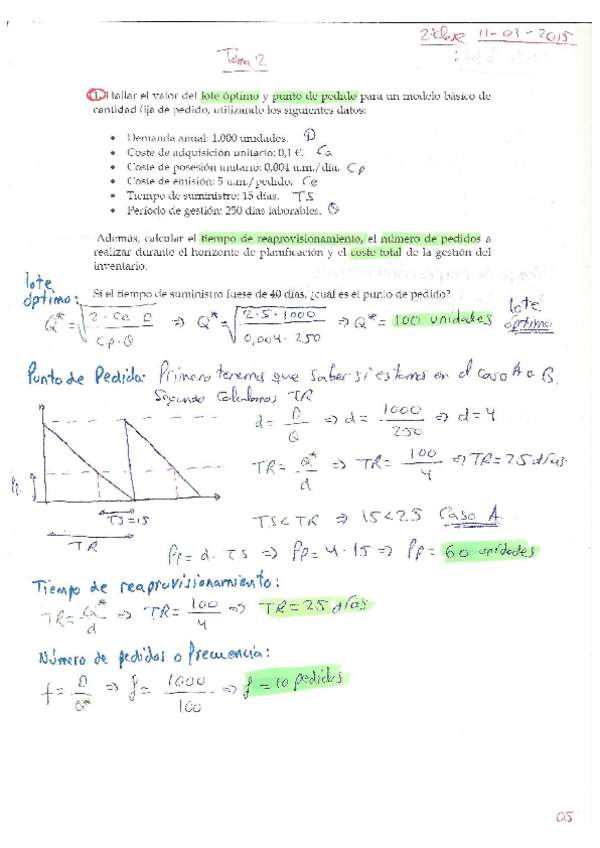 2ª clase 11-03-2015
Tema 2
1. Hallar el valor del lote óptimo y punto de pedido para un modelo básico de
cantidad fija de pedido, utilizando los siguientes datos:
• Demanda anual: 1.000 unidades. D
• Coste de adquisición unitario: 0,1 €. Ca
• Coste de posesión unitario: 0,004 u.m./día. Cp
• Coste de emisión: 5 u.m./pedido. Ce
• Tiempo de suministro: 15 días. TS
• Período de gestión: 250 días laborables. Θ
Además, calcular el tiempo de reaprovisionamiento, el número de pedidos a
realizar durante el horizonte de planificación y el coste total de la gestión del
inventario.
Si el tiempo de suministro fuese de 40 días, ¿cuál es el punto de pedido?
lote óptimo:
Q* = √(2 · Ce · D / Cp · Θ) => Q* = √(2 · 5 · 1000 / 0,004 · 250) => Q* = 100 unidades lote óptimo
Punto de Pedido: Primero tenemos que saber si estamos en el caso A o B.
Segundo calculamos TR
d = D / Θ => d = 1000 / 250 => d = 4
TR = Q* / d => TR = 100 / 4 => TR = 25 días
Pp
TS = 15
TR
TS < TR => 15 < 25 Caso A
Pp = d · TS => Pp = 4 · 15 => Pp = 60 unidades
Tiempo de reaprovisionamiento:
TR = Q* / d => TR = 100 / 4 => TR = 25 días
Número de pedidos o frecuencia:
f = D / Q* => f = 1000 / 100 => f = 10 pedidos